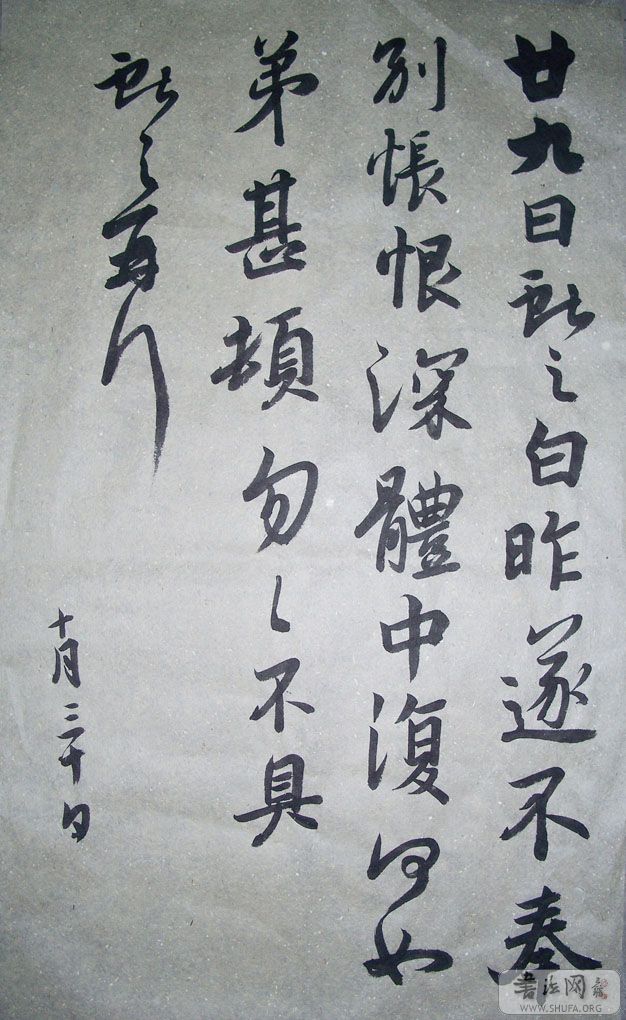 廿九日献之白昨遂不奉
别怅恨深體中復何如
弟甚頓匆匆不具
献之再行
十月三十日
書法网
WWW.SHUFA.ORG